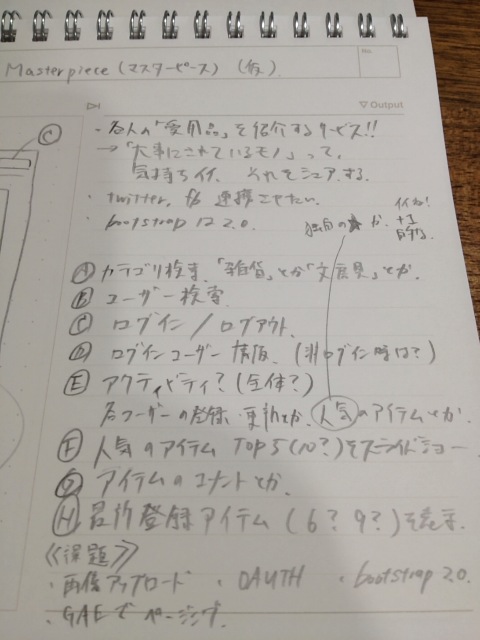 Masterpiece (マスターピース) (仮)
No.
▽Output
C
・各人の「愛用品」を紹介するサービス!!
→「大事にされているモノ」って、
気持ちイイ、それをシェアする。
・twitter, fb 連携させたい。
・bootstrap は 2.0.
独自の★か、イイね!
+1
Ⓐ カテゴリ検索、「雑貨」とか「文房具」とか。
Ⓑ ユーザー検索
Ⓒ ログイン/ログアウト
Ⓓ ログインユーザー情報、(非ログイン時は?)
Ⓔ アクティビティ?(全体?)
各ユーザーの登録・更新とか、人気のアイテムとか。
Ⓕ 人気のアイテム TOP5(10?)をスライドショー
Ⓖ アイテムのコメントとか。
Ⓗ 登録アイテム(6?9?)を
《課題》
・画像アップロード ・OAUTH ・bootstrap 2.0.
・GAEで ページング.